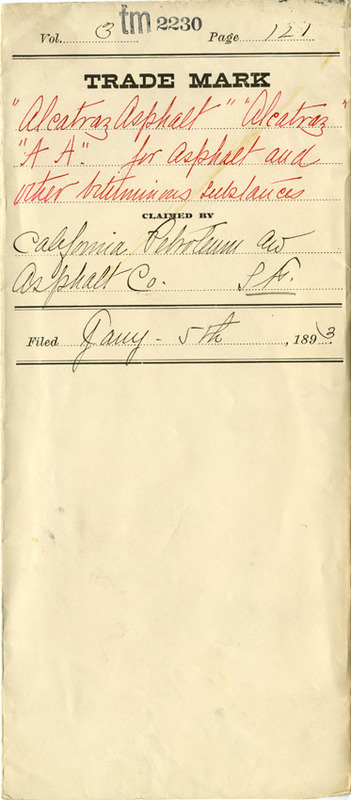 Vol. 3 tm 2230 Page 121
TRADE MARK
"Alcatraz Asphalt" "Alcatraz"
"A A." for asphalt and
other bituminous substances
CLAIMED BY
California Petroleum and
Asphalt Co. S.F.
Filed Jany - 5th, 1893.